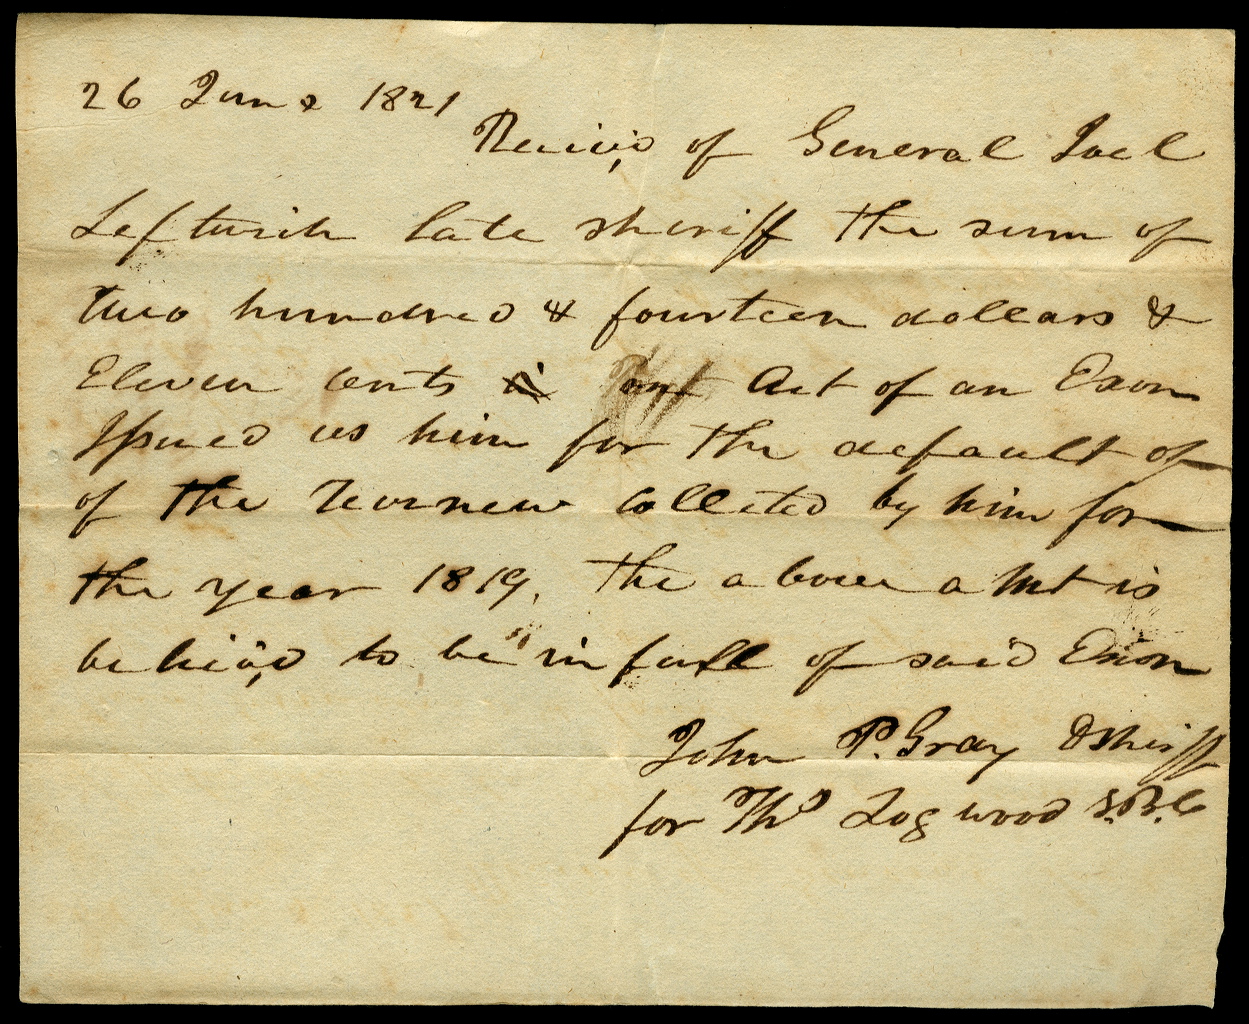 26 June 1821
Receiv,d of General Joel
Leftwich late sheriff the sum of
two hundred & fourteen dollars &
Eleven cents on Act of an Exon
Issued vs him for the default of
of the Revenew Collected by him for
the year 1819, the above amt is
beleiv,d to be in full of said Exon
John P. Gray Dsheriff
for Thos Logwood S.B.C